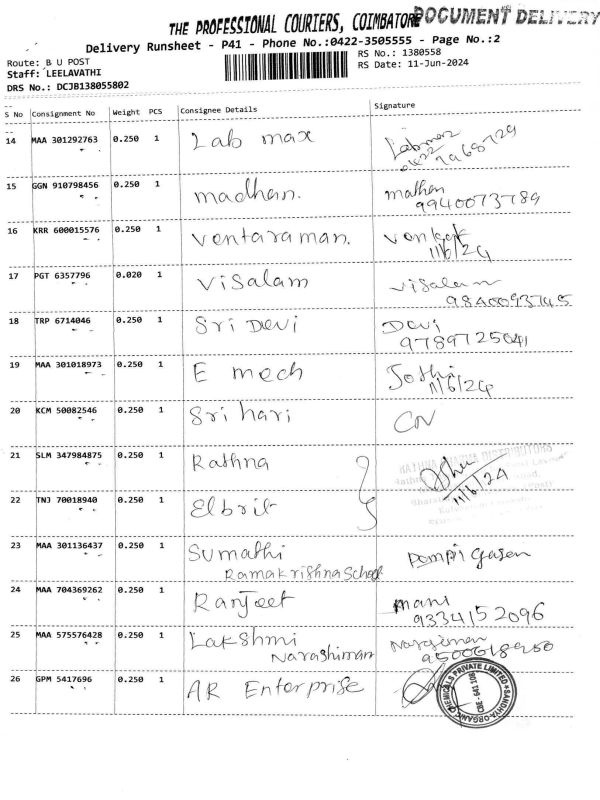 THE PROFESSIONAL COURIERS, COIMBATORE DOCUMENT DELIVERY
Delivery Runsheet - P41 - Phone No.:0422-3505555 - Page No.:2
Route: B U POST
RS No.: 1380558
Staff: LEELAVATHI
RS Date: 11-Jun-2024
DRS No.: DCJB138055802
S No Consignment No Weight PCS Consignee Details Signature
14 MAA 301292763 0.250 1 Lab max Labmax
0422
15 GGN 910798456 0.250 1 madhan. mathan
9940073789
16 KRR 600015576 0.250 1 ventaraman. venkat
11/6/24
17 PGT 6357796 0.020 1 visalam visalam
18 TRP 6714046 0.250 1 Sri Devi Devi
9789725041
19 MAA 301018973 0.250 1 E mech Jothi
11/6/24
20 KCM 50082546 0.250 1 Sri hari
21 SLM 347984875 0.250 1 Rathna
DISTRIBUTORS
11/6/24
22 TNJ 70018940 0.250 1 Elbrit
23 MAA 301136437 0.250 1 Sumathi
Ramakrishna School
24 MAA 704369262 0.250 1 Ranjeet mani
9334152096
25 MAA 575576428 0.250 1 Lakshmi
Narashiman
26 GPM 5417696 0.250 1 AR Enterprise
SANDHYA ORGANIC CHEMICALS PRIVATE LIMITED
CBE - 641 108